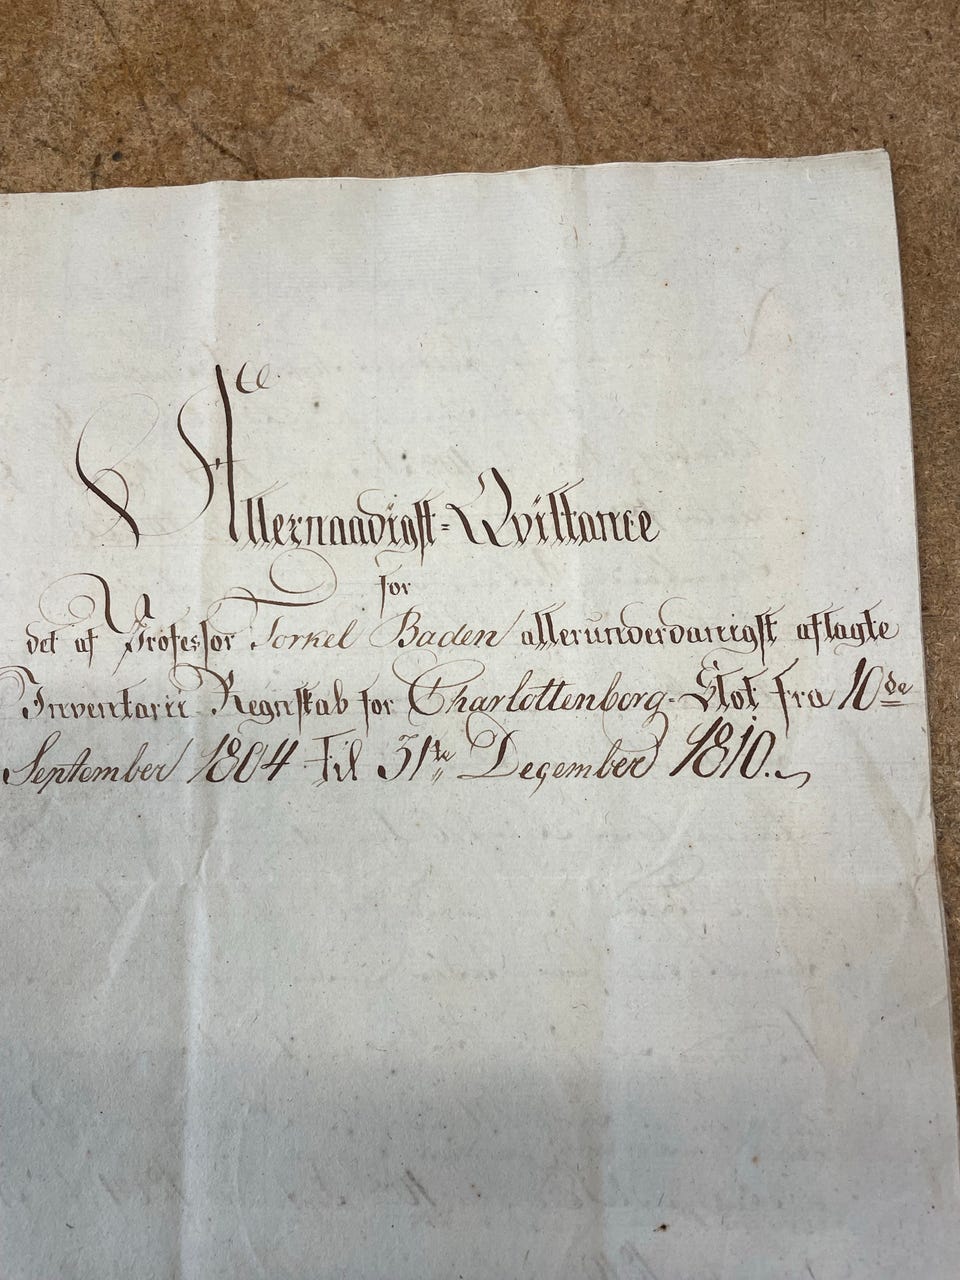 Allernaadigst=Qvittance
for
det af Professor Torkel Baden allerunderdanigst aflagte
Inventarii Regnskab for Charlottenborg-Slot fra 10de
September 1804 til 31te December 1810.